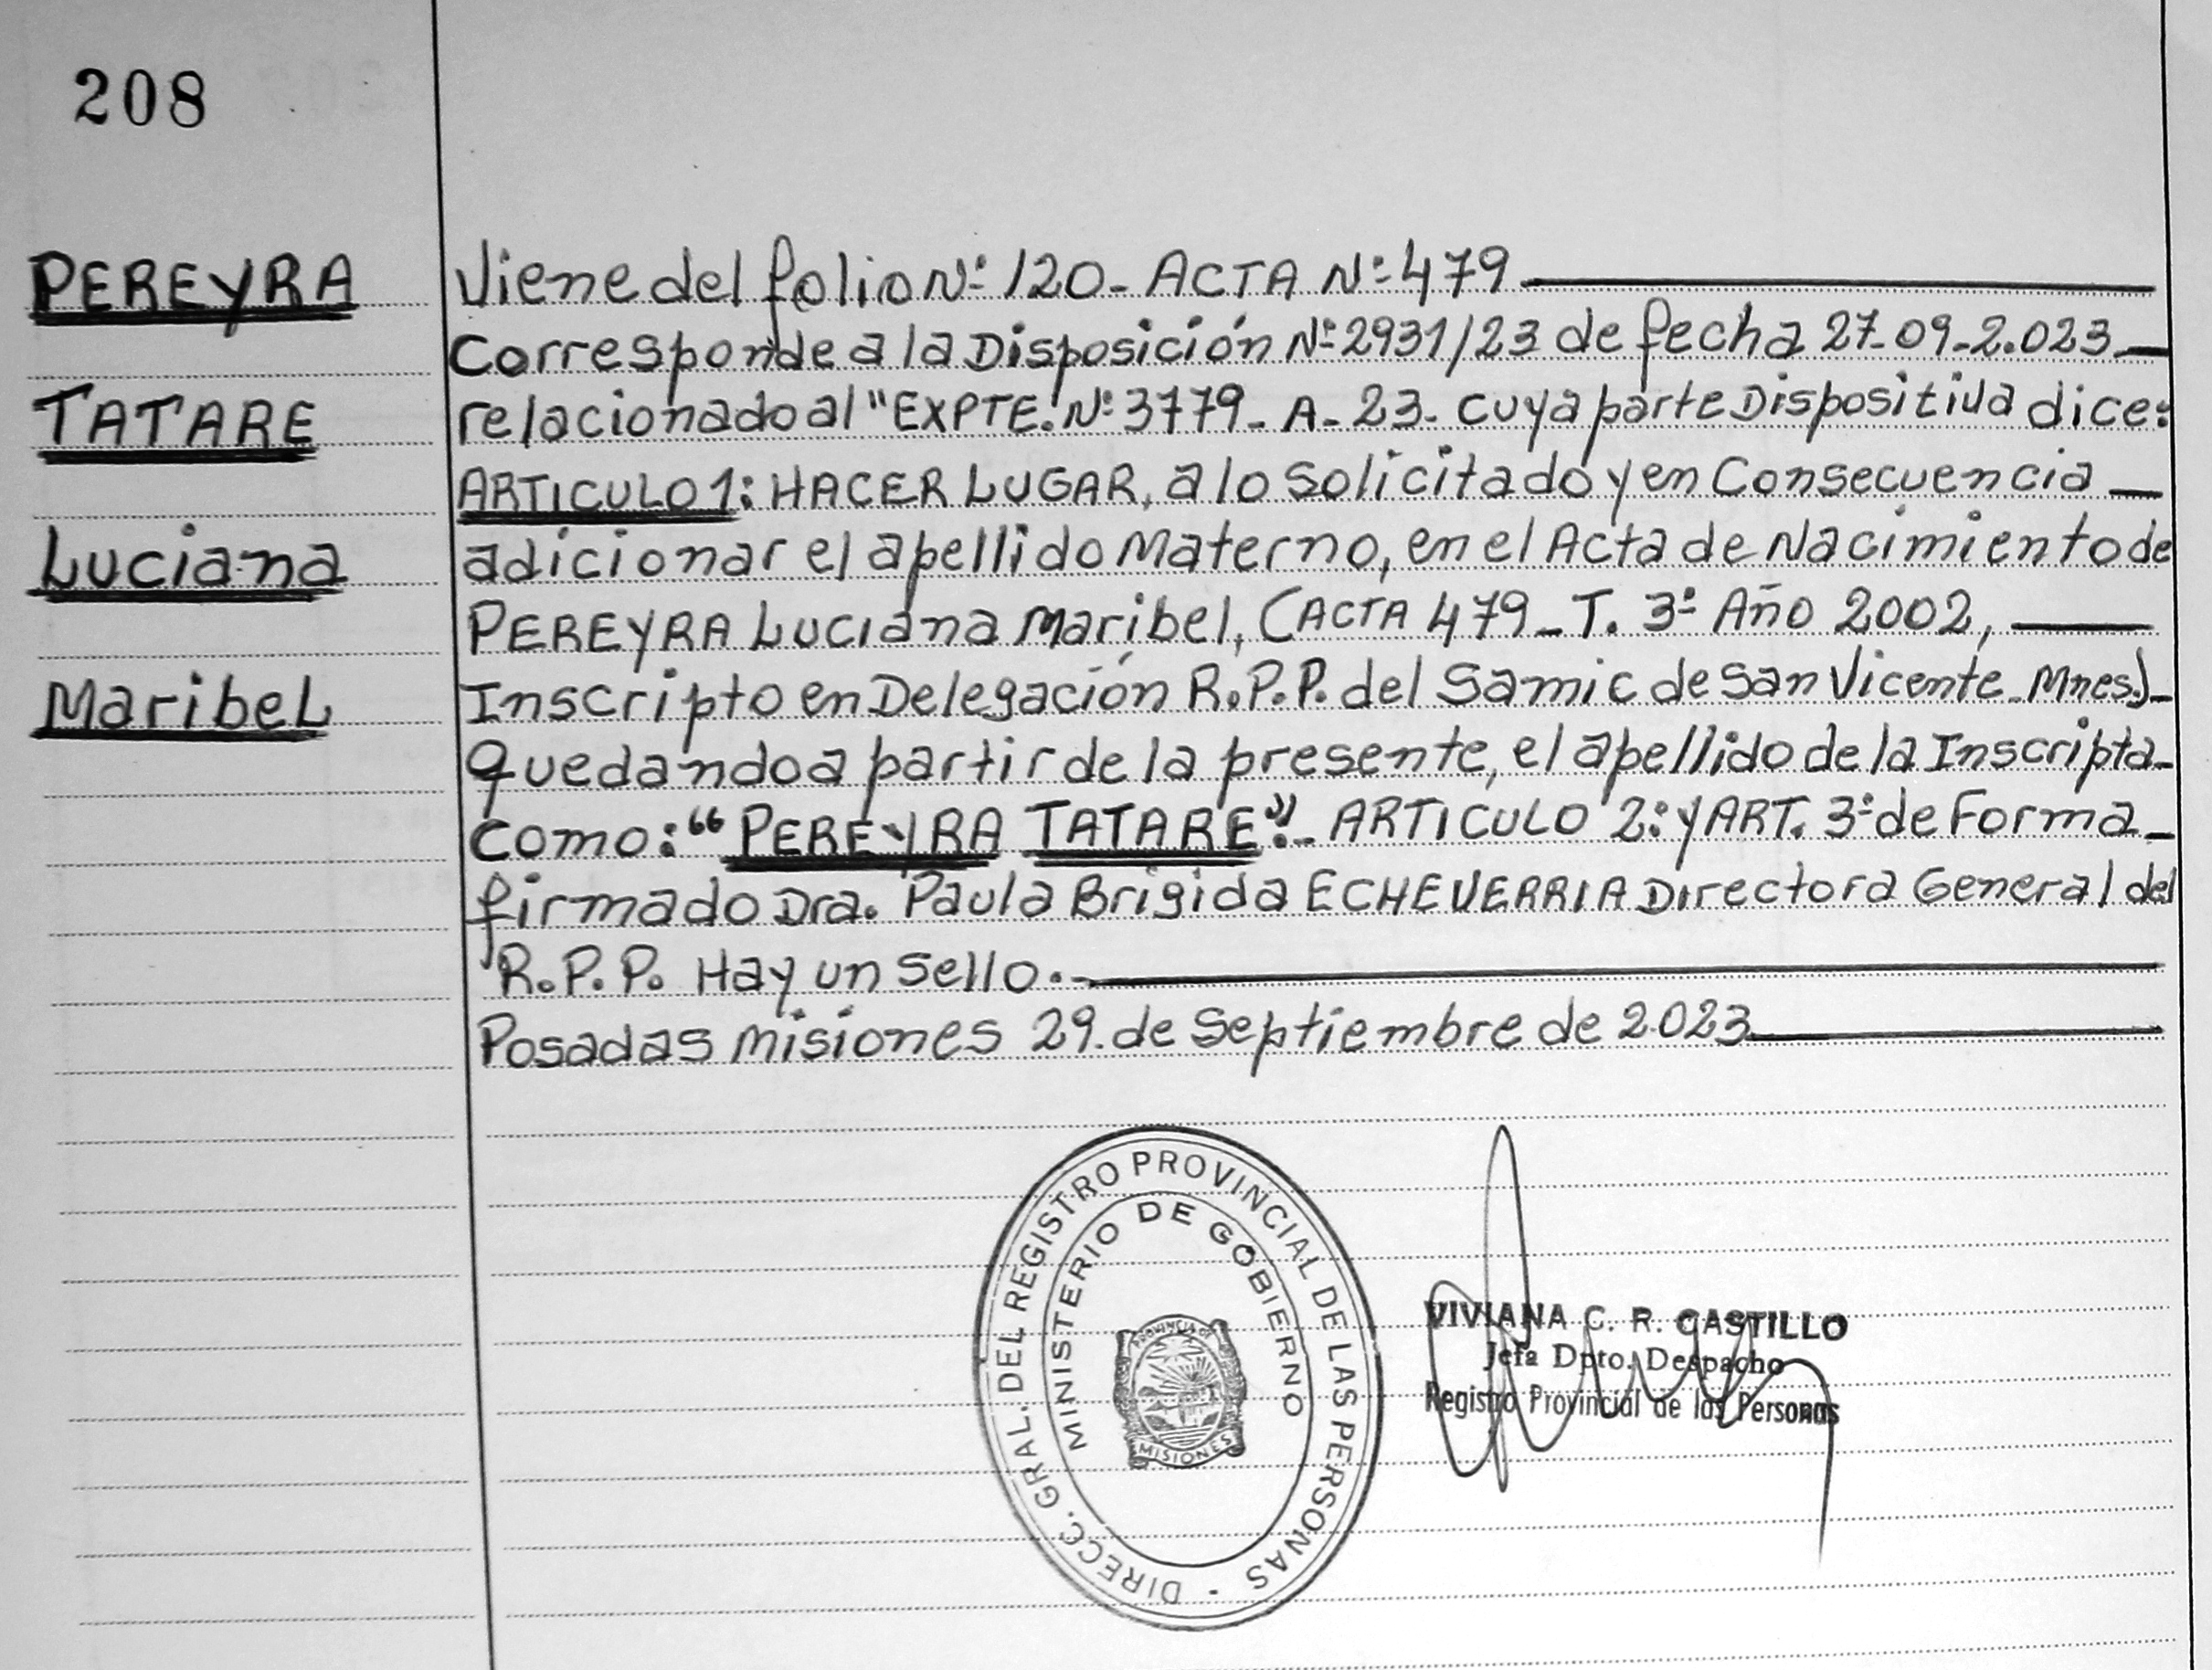 208
PEREYRA
TATARE
Luciana
MaribeL
Viene del folio Nº 120- ACTA Nº 479
Corresponde a la Disposición Nº 2931/23 de fecha 27-09-2.023
relacionado al "EXPTE. Nº 3779- A- 23- cuya parte Dispositiva dice:
ARTICULO 1: HACER LUGAR, a lo solicitado y en Consecuencia
adicionar el apellido Materno, en el Acta de Nacimiento de
PEREYRA Luciana Maribel, (ACTA 479- T. 3º Año 2002,
Inscripto en Delegación R.P.P. del Samic de San Vicente-Mnes.)-
Quedando a partir de la presente, el apellido de la Inscripta-
Como: "PEREYRA TATARE".- ARTICULO 2: y ART. 3º de Forma-
firmado Dra. Paula Brigida ECHEVERRIA Directora General del
R.P.P. Hay un sello.-
Posadas misiones 29 de Septiembre de 2023
DIRECC. GRAL. DEL REGISTRO PROVINCIAL DE LAS PERSONAS -
MINISTERIO DE GOBIERNO
PROVINCIA DE
MISIONES
VIVIANA C. R. CASTILLO
Jefa Dpto. Despacho
Registro Provincial de las Personas